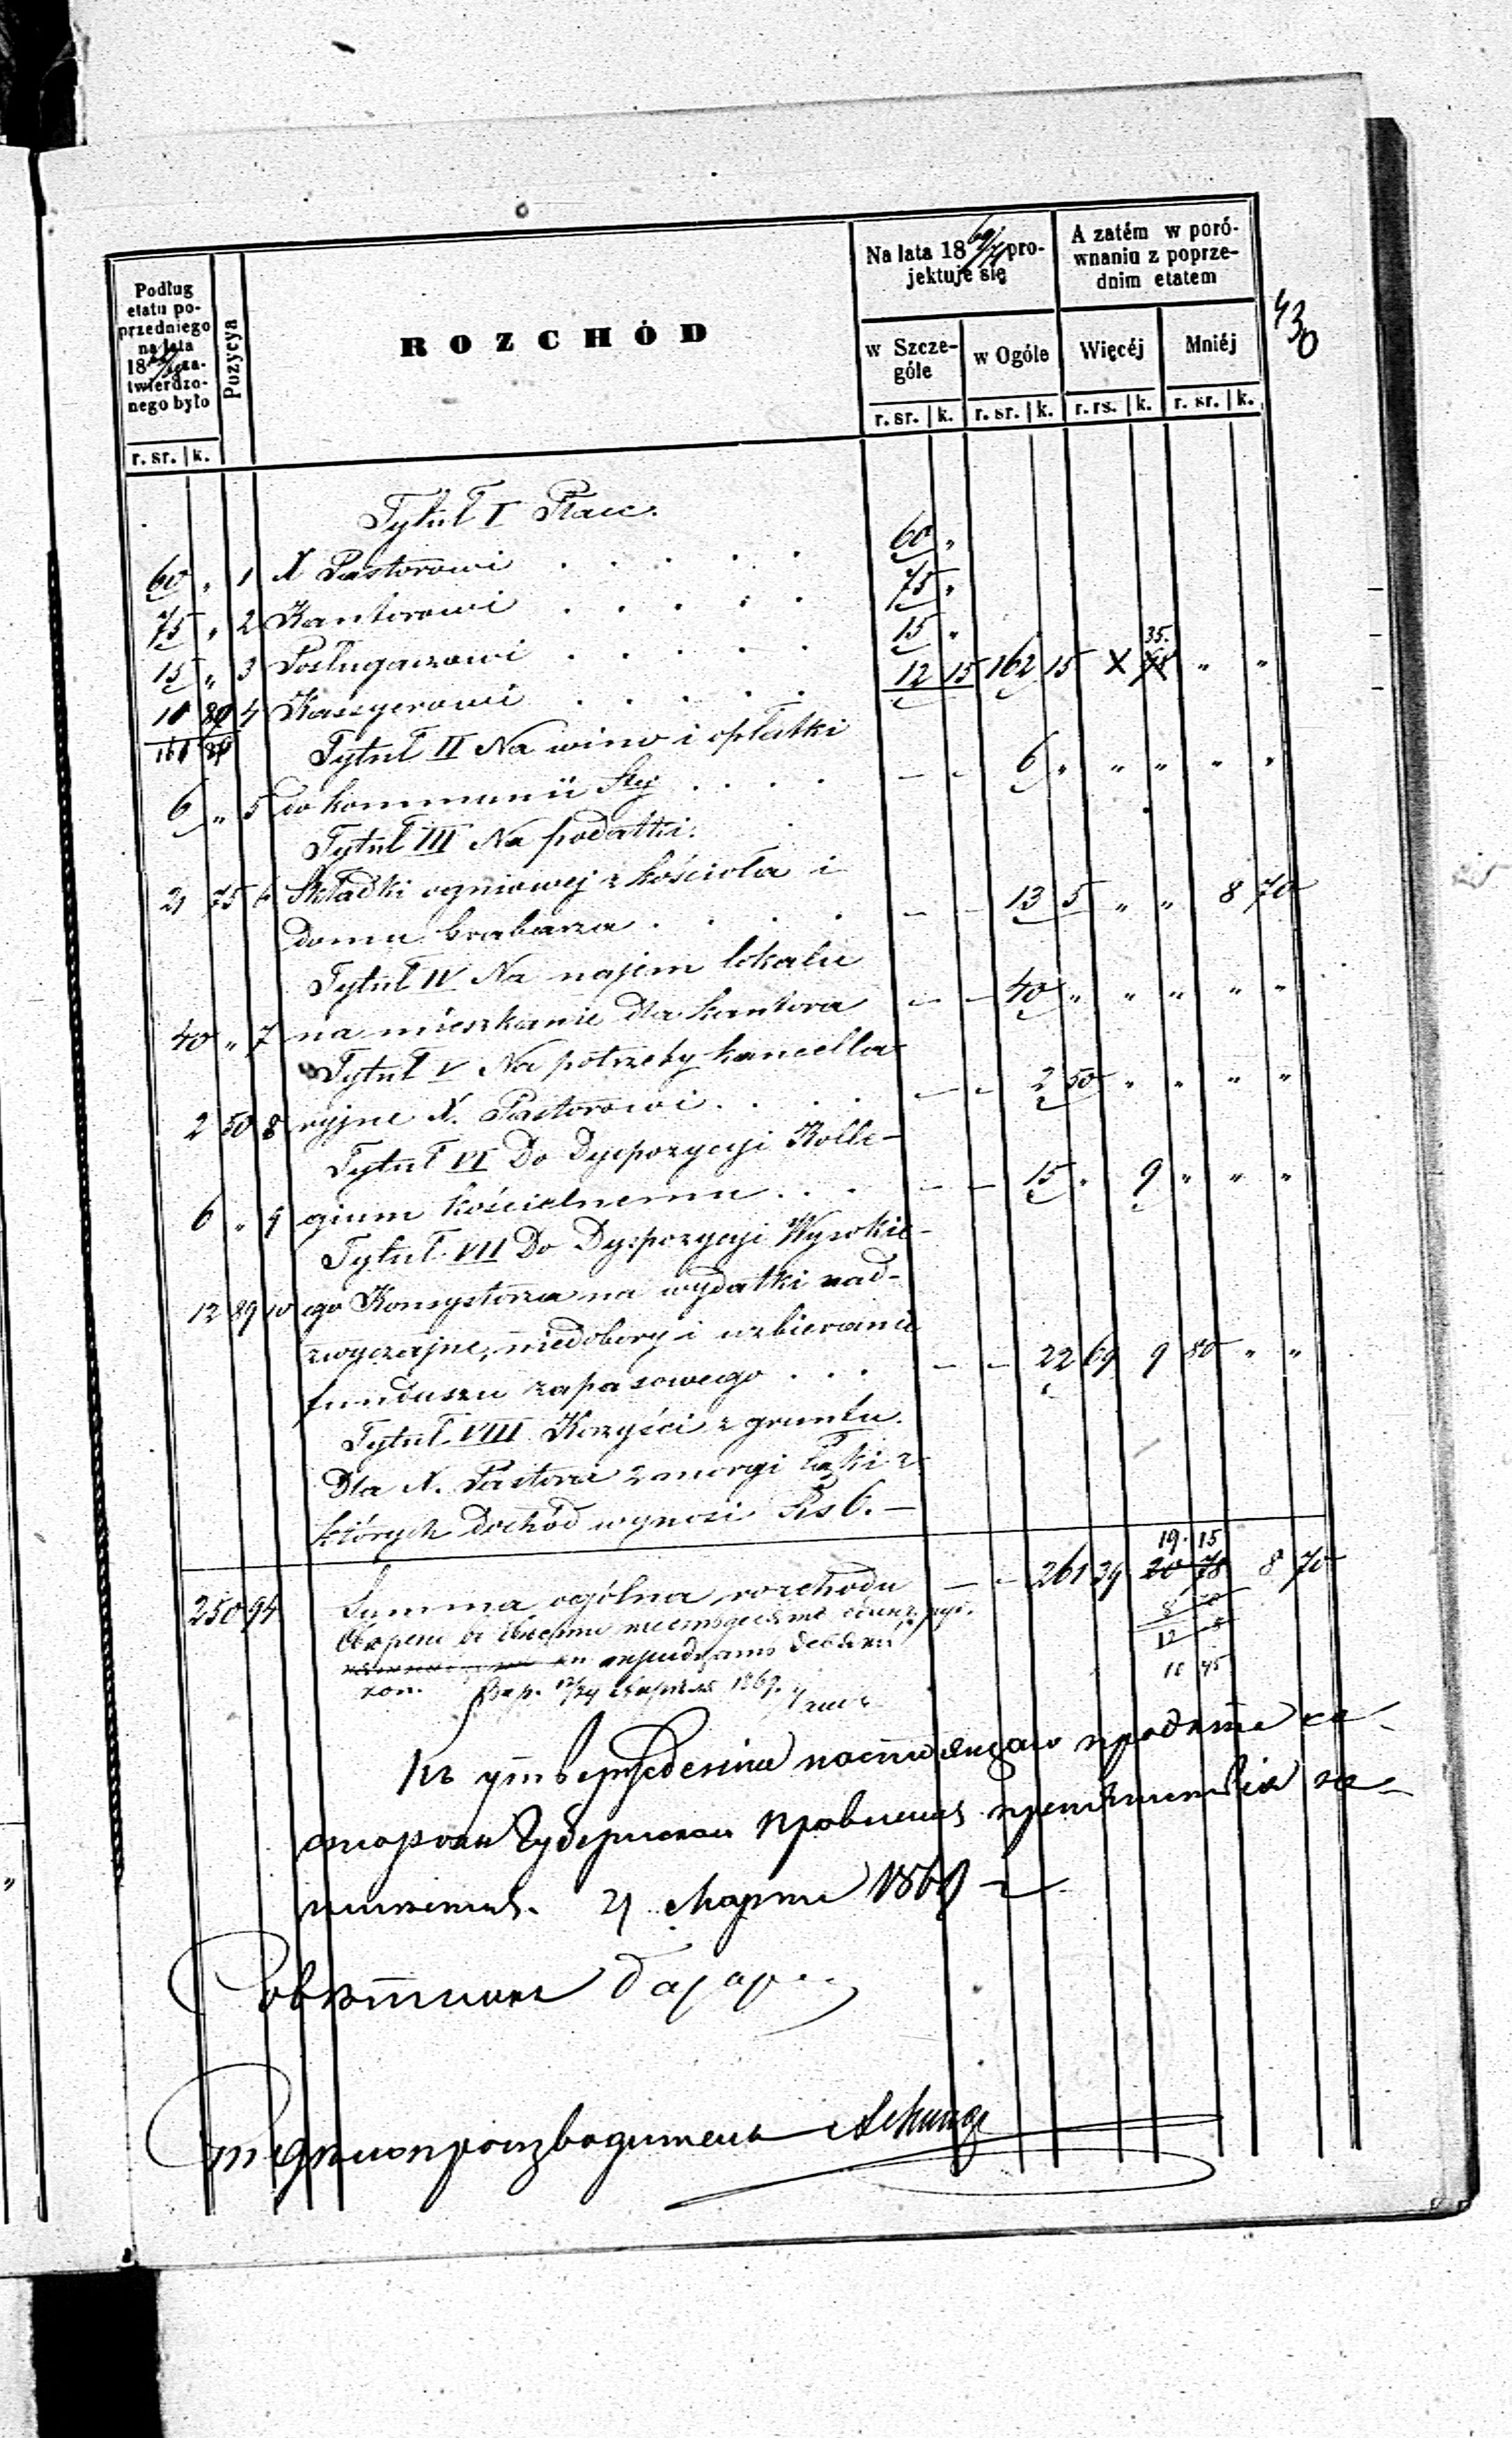 430
Podług etatu poprzedniego na lata 18 zatwierdzonego było
Pozycya
ROZCHÓD
Na lata 18 69/71 projektuje się
A zatém w porównaniu z poprzednim etatem
w Szczególe
w Ogóle
Więcéj
Mniéj
r. sr. | k.
r. sr. | k.
r. sr. | k.
r. rs. | k.
r. sr. | k.
Tytuł I Płace.
60 „ 1 X Pastorowi . . . . . 60 „
75 „ 2 Kantorowi . . . . . 75 „
15 „ 3 Posługaczowi . . . . . 15 „
35.
80 4 Kassyerowi . . . . . 12 15 162 15 „ „
Tytuł II Na wino i opłatki
6 „ 5 do kommunii Stej . . . . — — 6 „ „ „ „ „
Tytuł III Na podatki.
21 75 6 Składki ogniowej z kościoła i
domu Grabarza . . . . — — 13 5 „ „ 8 70
Tytuł IV Na najem lokalu
40 „ 7 na mieszkanie dla kantora — — 40 „ „ „ „ „
Tytuł V Na potrzeby kancella-
2 50 8 ryjne X. Pastorowi . . . — — 2 50 „ „ „ „
Tytuł VI Do Dyspozycyi Kolle-
6 „ 9 gium kościelnemu . . . — — 15 „ 9 „ „ „
Tytuł VII Do Dyspozycyi Wysokie-
12 89 10 go Konsystorza na wydatki nad-
zwyczajne, niedobory i uzbieranie
funduszu zapasowego . . . — — 22 69 9 80 „ „
Tytuł VIII Korzyści z gruntu.
Dla X. Pastora 2 morgi łąki z
których dochód wynosi Rs 6. —
19. 15
250 94 Summa ogólna rozchodu — — 261 39 20 78 8 70
10 45
коп. Вар. 12/24 1869.
Къ утвержденію настоящаго проэкта со
стороны Губернскаго Правленія препятствія не
имѣется. 21 Марта 1869
Совѣтникъ
Дѣлопроизводитель